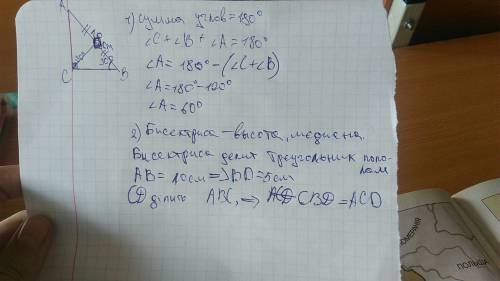 A
C
B
1) Сумма углов = 180°
∠C + ∠B + ∠A = 180°
∠A = 180° - (∠C + ∠B)
∠A = 180° - 120°
∠A = 60°
2) Бисектриса - высота, медиана.
Бисектриса делит треугольник попо-
лом
AB = 10см => BD = 5см
CD ділить ABC, => CBD = ACD
ПОМЕРАНИЯ
ПОЛЬША